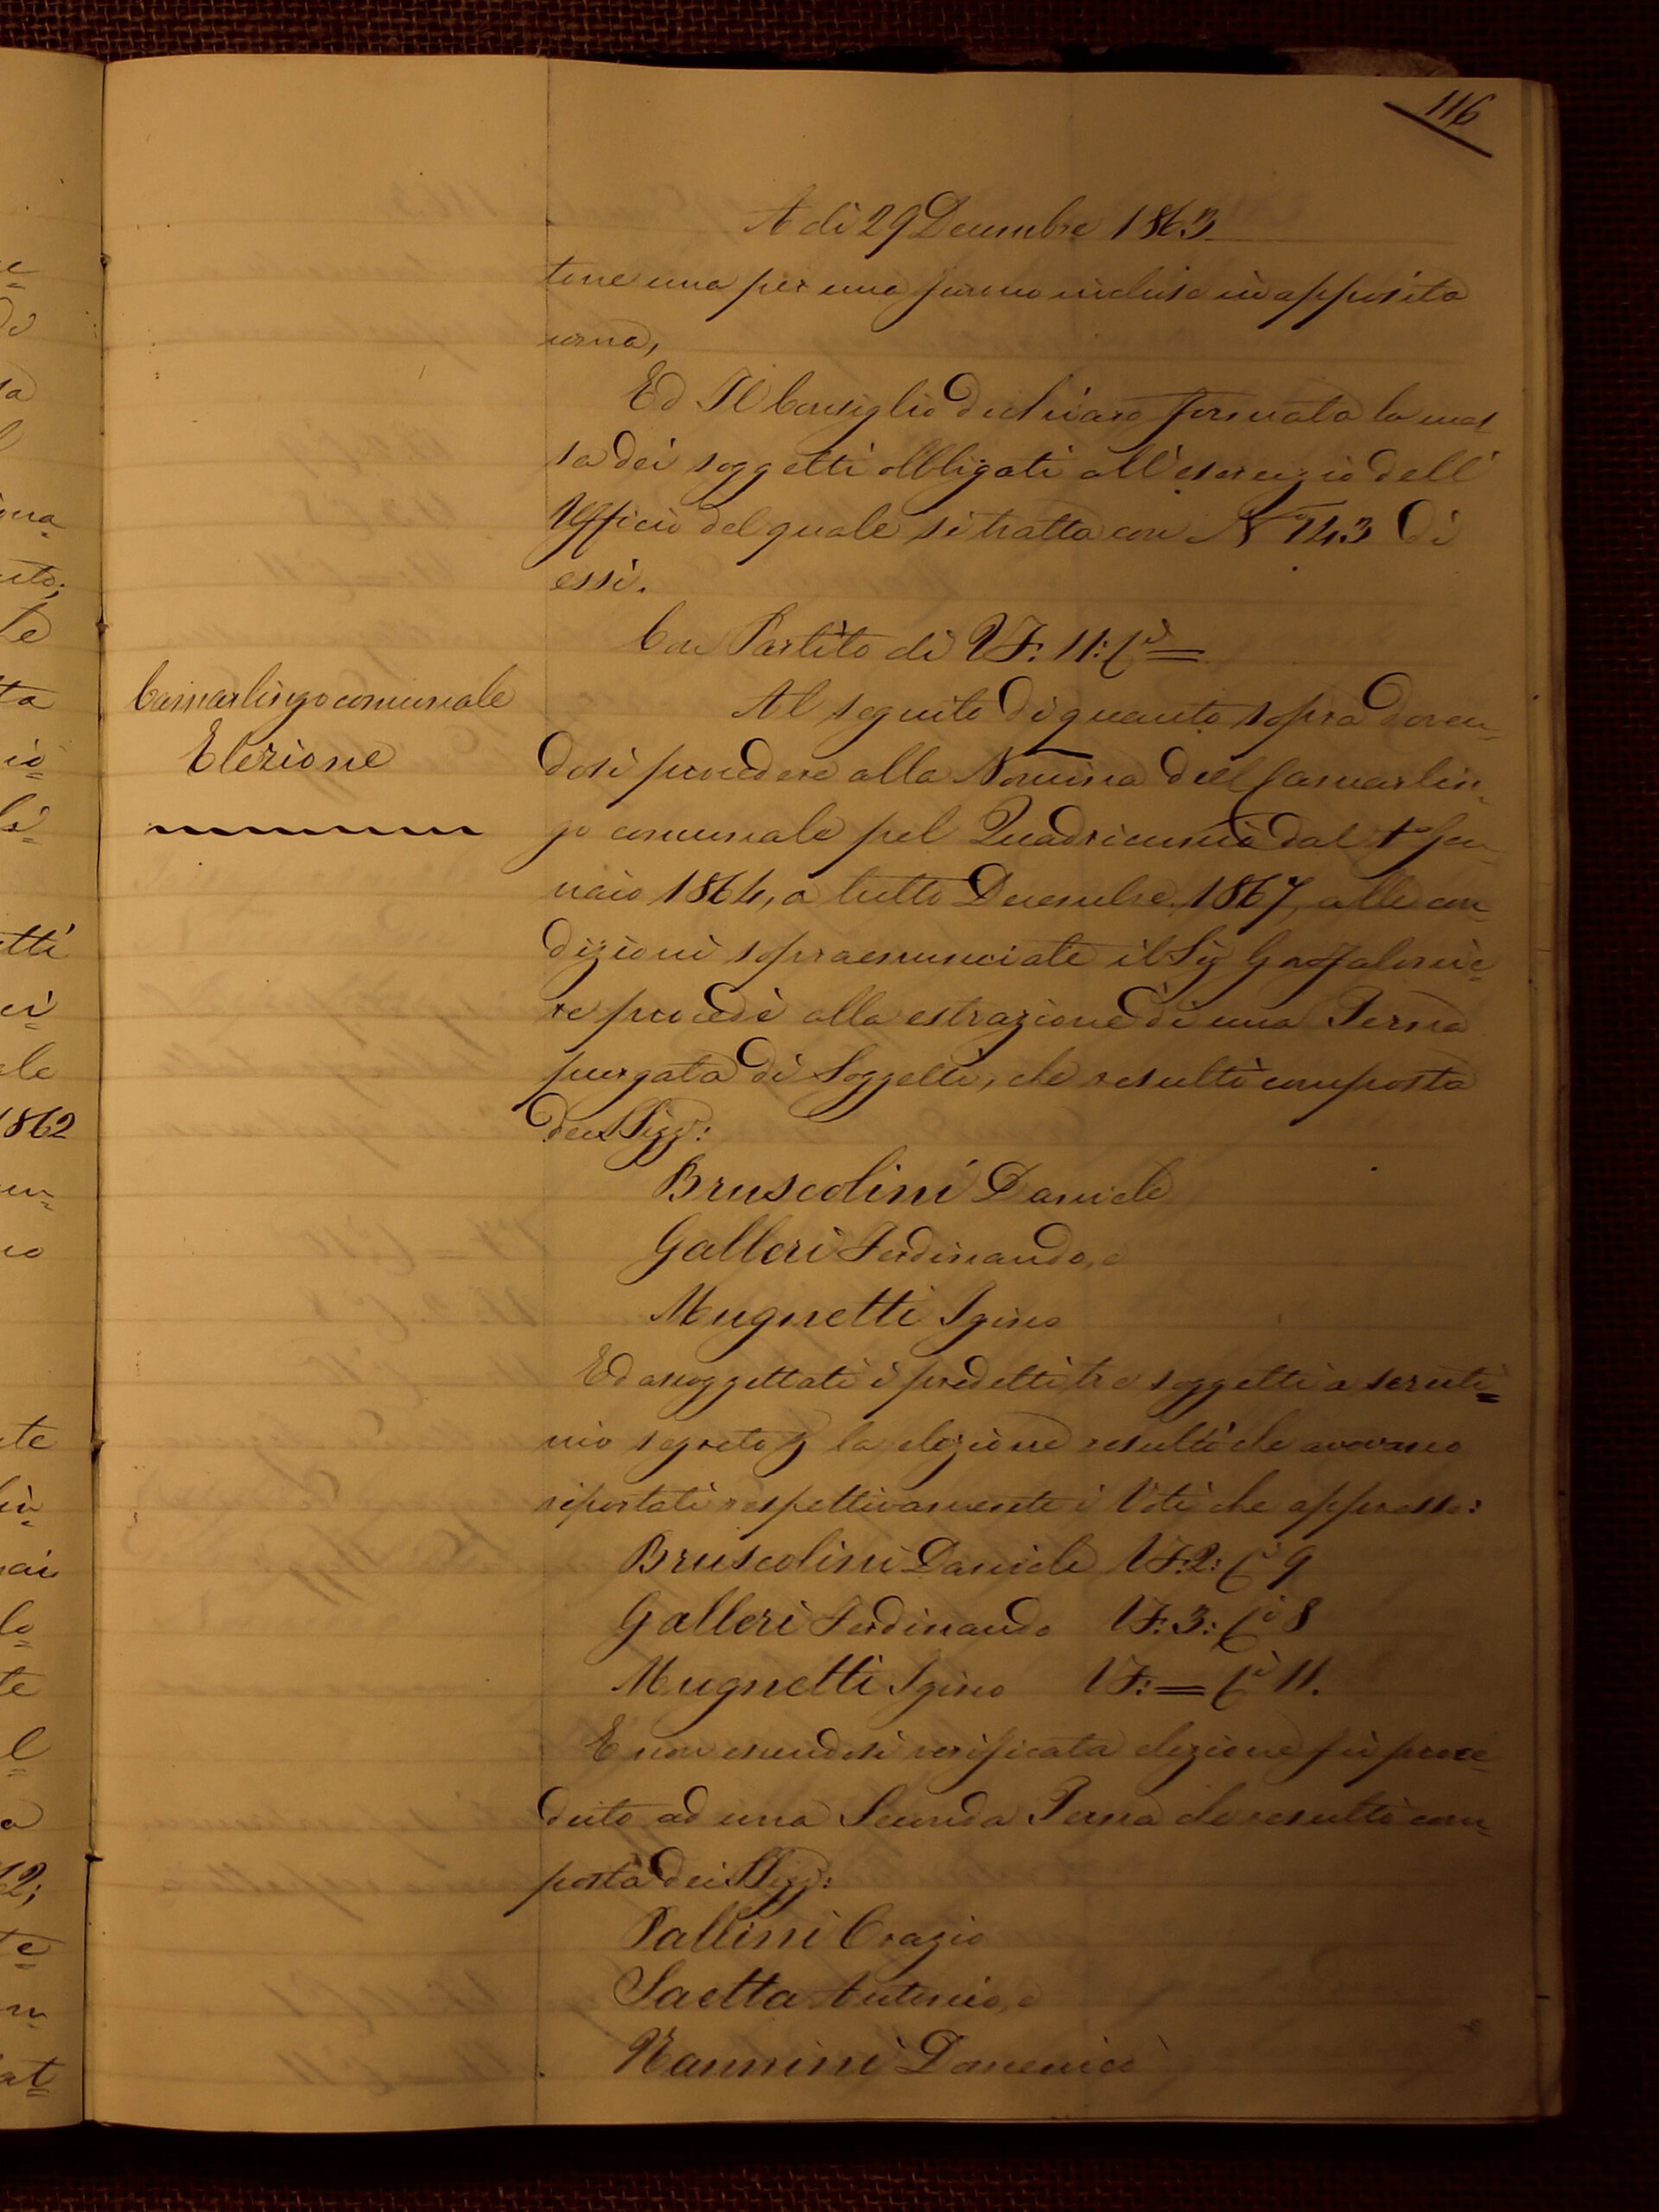 116
A dì 29 Decembre 1863
tene una per una furono incluse in apposita
urna,
Ed Il Consiglio dichiarò formata la mas
sa dei soggetti obbligati all'esercizio dell'
Ufficio del quale si tratta con N° 143 di
essi.
Con Partito di VF: 11: Ci =
Camarlingo comunale
Elezione
Al seguito di quanto sopra doven-
dosi procedere alla Nomina dell Camarlin-
go comunale pel Quadriennio dal 1° Gen-
naio 1864, a tutto Decembre 1867, alle con-
dizioni sopraenunciate il Sig Gonfalonie-
re procedè alla estrazione di una Terna
purgata di Soggetti, che resultò composta
dei SSigg:
Bruscolini Daniele
Galleri Ferdinando, e
Mugnetti Igino
Ed assoggettati i predetti tre soggetti a scruti=
nio segreto p la elezione resultò che avevano
riportati respettivamente i Voti che appresso:
Bruscolini Daniele VF: 2: Ci 9
Galleri Ferdinando VF: 3: Ci 8
Mugnetti Igino VF: = Ci 11.
E non essendosi verificata elezione fù proce-
duto ad una Seconda Terna che resultò com-
posta dei SSigg:
Pallini Orazio
Saetta Antonio, e
Nannini Domenico